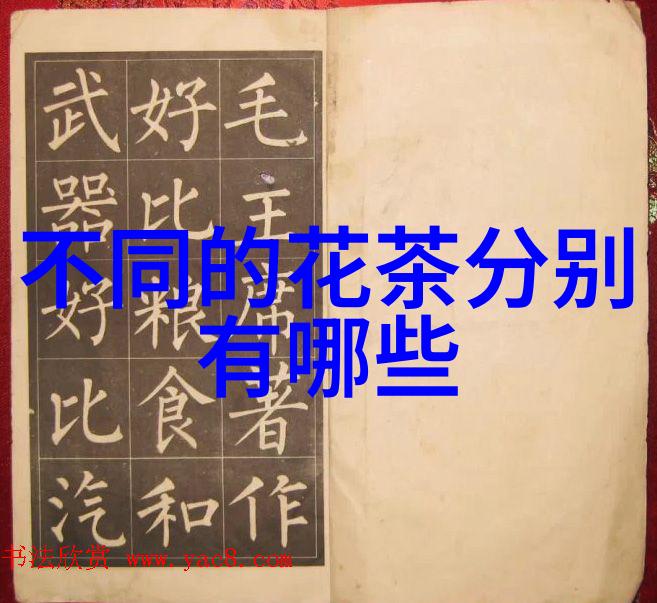 不同的花茶分别
有哪些
毛主席著作
好比粮食和
武器好比汽
书法欣赏 www.yac8.com